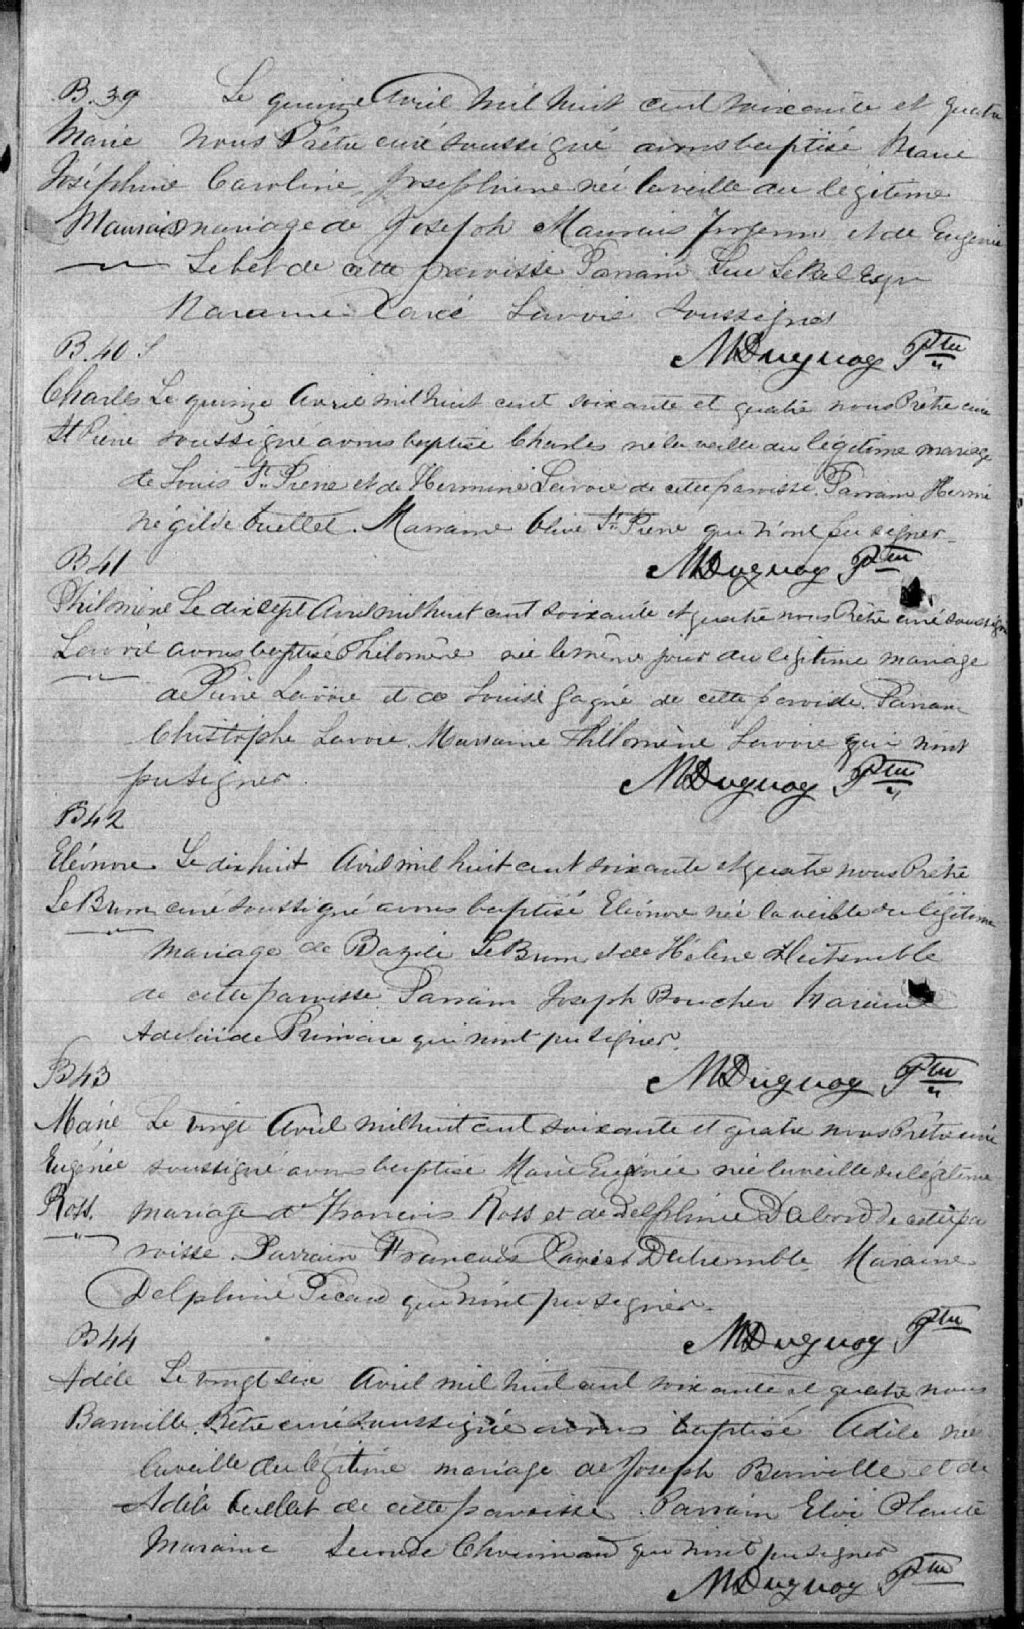 B.39 Le quinze Avril mil huit cent soixante et quatre
Marie nous Prêtre curé soussigné avons baptisé Marie
Joséphine Caroline Josephine née la veille du légitime
Maurais mariage de Joseph Maurais et de Eugenie
Lebel de cette paroisse Parrain Luc LeBel Esqr
Maraine Lavoie soussignés
B.40 MDuguay Ptre
Charles Le quinze Avril mil huit cent soixante et quatre nous Prêtre curé
St Pierre soussigné avons baptisé Charles né la veille du légitime mariage
de Louis St Pierre et de Hermine Lavoie de cette paroisse. Parrain Hermé
négilde Ouellet Marraine Olive St Pierre qui n'ont pu signer.
B41 MDuguay Ptre
Philomène Le dix sept Avril mil huit cent soixante et quatre nous Prêtre curé soussigné
Lavoie avons baptisé Philomène née le même jour du légitime mariage
de Pierre Lavoie et de Louise Gagné de cette paroisse. Parrain
Christophe Lavoie Marraine Philomène Lavoie qui n'ont
pu signer. MDuguay Ptre
B42
Eléonore Le dix huit Avril mil huit cent soixante et quatre nous Prêtre
LeBrun curé soussigné avons baptisé Eléonore née la veille du légitime
mariage de Bazile LeBrun et de Hélène
de cette paroisse Parrain Joseph Boucher Maraine
Adelaide qui n'ont pu signer.
B43 MDuguay Ptre
Marie Le vingt Avril mil huit cent soixante et quatre nous Prêtre curé
Eugénée soussigné avons baptisé Marie Eugénée née la veille du légitime
Ross. mariage de Francois Ross et de Delphine Dabord de cette pa
roisse Parrain Francois Maraine
Delphine Picard qui n'ont pu signer.
B44 MDuguay Ptre
Adèle Le vingt six Avril mil huit cent soixante et quatre nous
Banville Prêtre curé soussigné avons baptisé Adèle née
la veille du légitime mariage de Joseph Banville et de
Adèle Ouellet de cette paroisse Parrain Eloi Plante
Maraine Chouinard qui n'ont pu signer
MDuguay Ptre